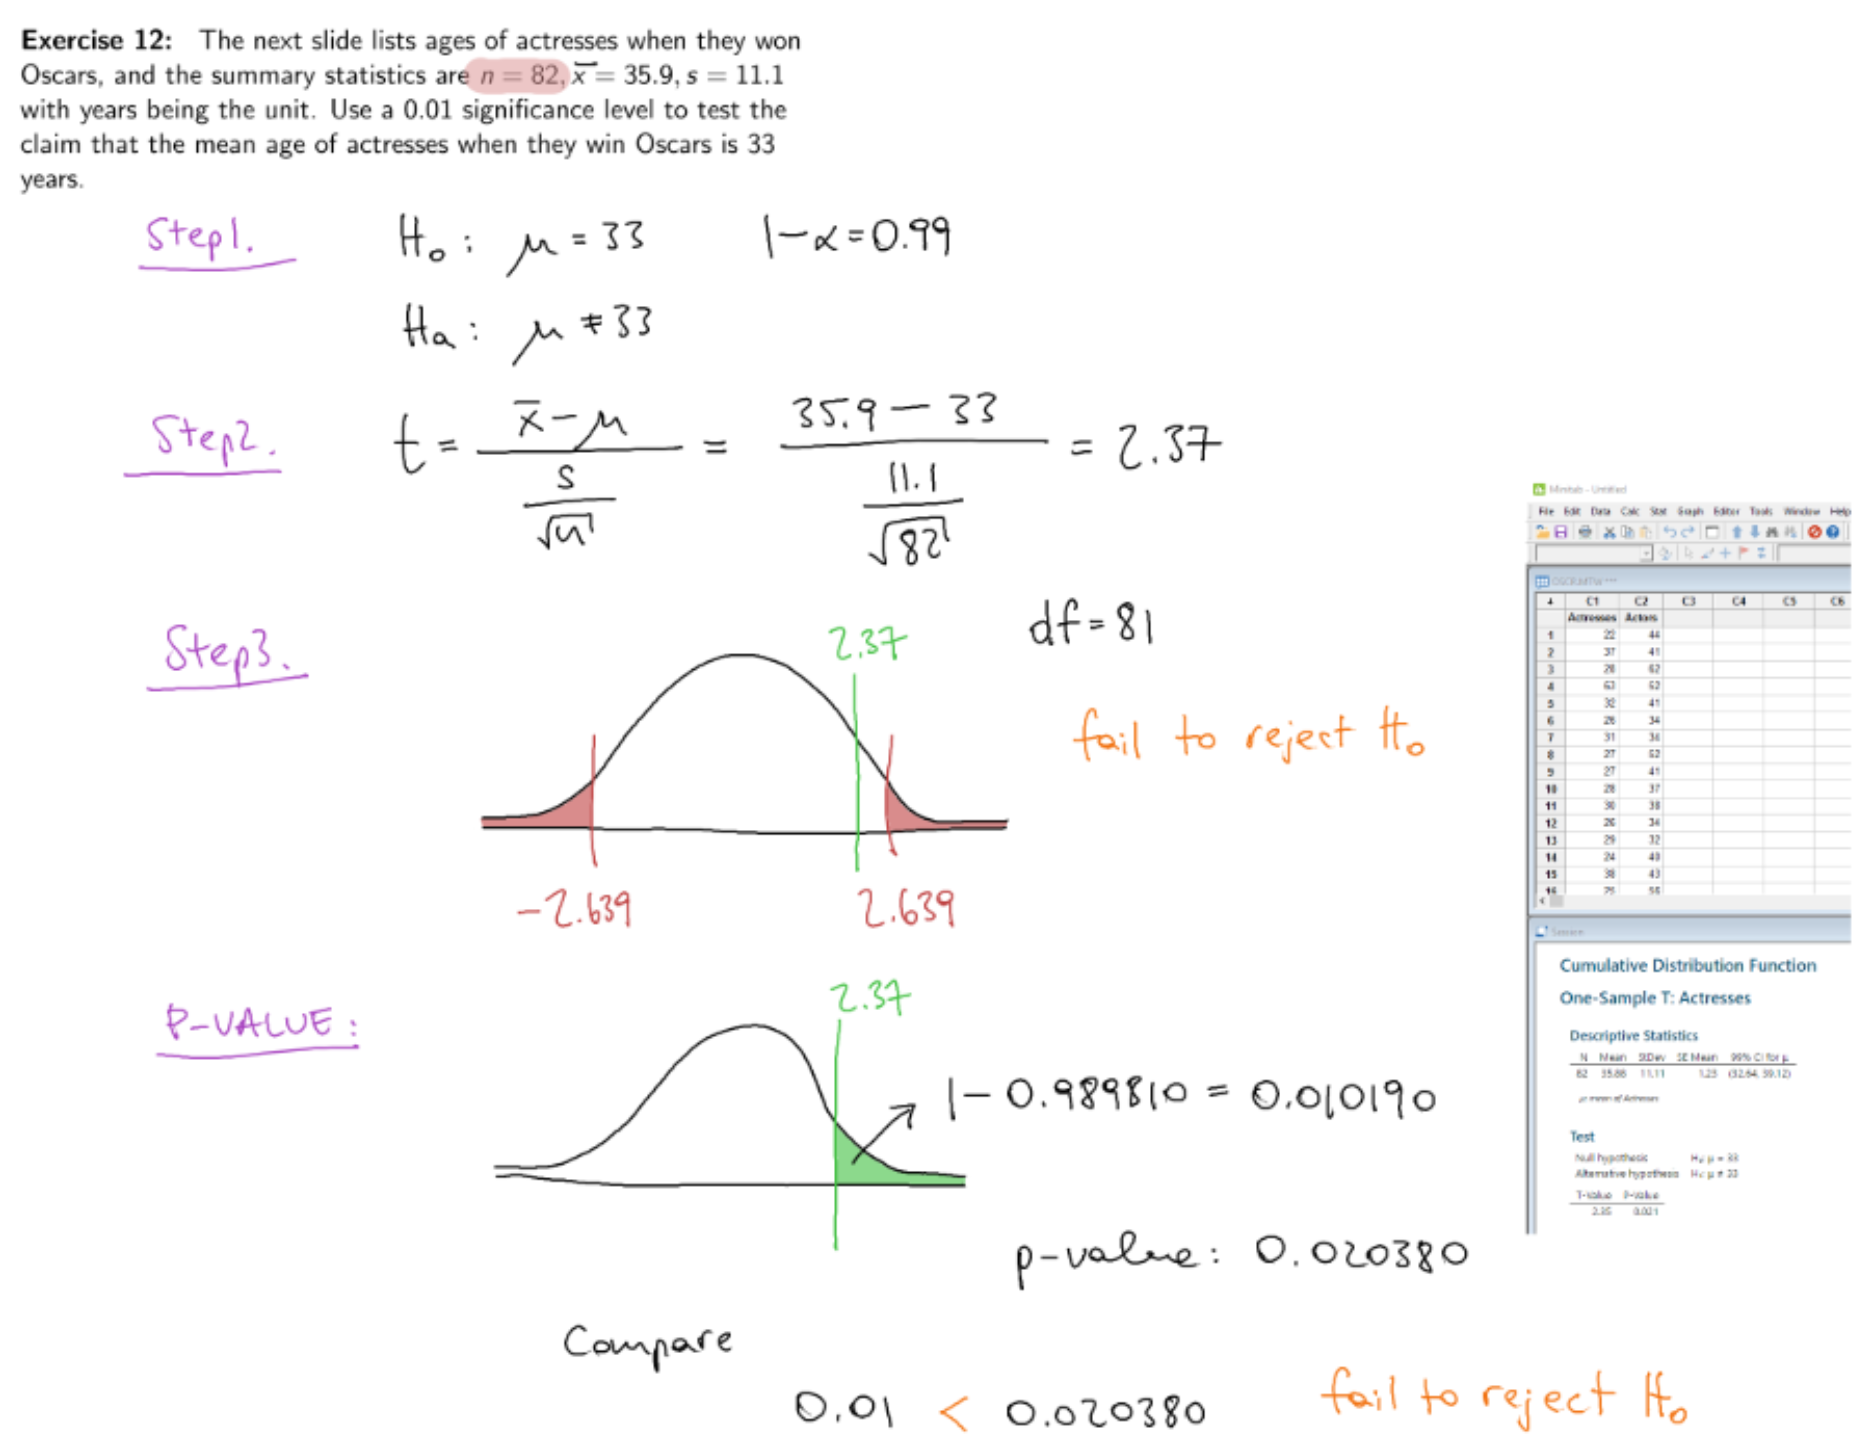 Exercise 12: The next slide lists ages of actresses when they won
Oscars, and the summary statistics are n = 82, x̄ = 35.9, s = 11.1
with years being the unit. Use a 0.01 significance level to test the
claim that the mean age of actresses when they win Oscars is 33
years.
Step1. H₀ : μ = 33 1-α=0.99
Ha : μ ≠ 33
Step2. t = (x̄ - μ) / (s / √n) = (35.9 - 33) / (11.1 / √82) = 2.37
Step3. 2.37 df = 81
fail to reject H₀
-2.639 2.639
P-VALUE: 2.37
1 - 0.989810 = 0.010190
p-value: 0.020380
Compare
0.01 < 0.020380 fail to reject H₀
Minitab - Untitled
File Edit Data Calc Stat Graph Editor Tools Window Help
C1 C2 C3 C4 C5 C6
Actresses Actors
1 22 44
2 37 41
3 28 62
4 63 52
5 32 41
6 26 34
7 31 34
8 27 52
9 27 41
10 28 37
11 30 38
12 26 34
13 29 32
14 24 40
15 38 43
16
Session
Cumulative Distribution Function
One-Sample T: Actresses
Descriptive Statistics
N Mean StDev SE Mean 99% CI for μ
82 35.88 11.11 1.23 (32.64, 39.12)
μ: mean of Actresses
Test
Null hypothesis H₀: μ = 33
Alternative hypothesis H₁: μ ≠ 33
T-Value P-Value
2.35 0.021